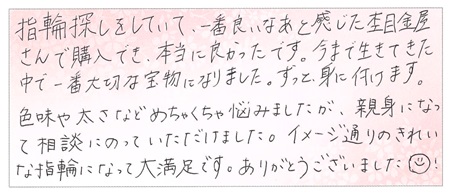 指輪探しをしていて、一番良いなあと感じた杢目金屋
さんで購入でき、本当に良かったです。今まで生きてきた
中で一番大切な宝物になりました。ずっと身に付けます。
色味や太さなどめちゃくちゃ悩みましたが、親身になっ
て相談にのっていただけました。イメージ通りのきれい
な指輪になって大満足です。ありがとうございました☺!